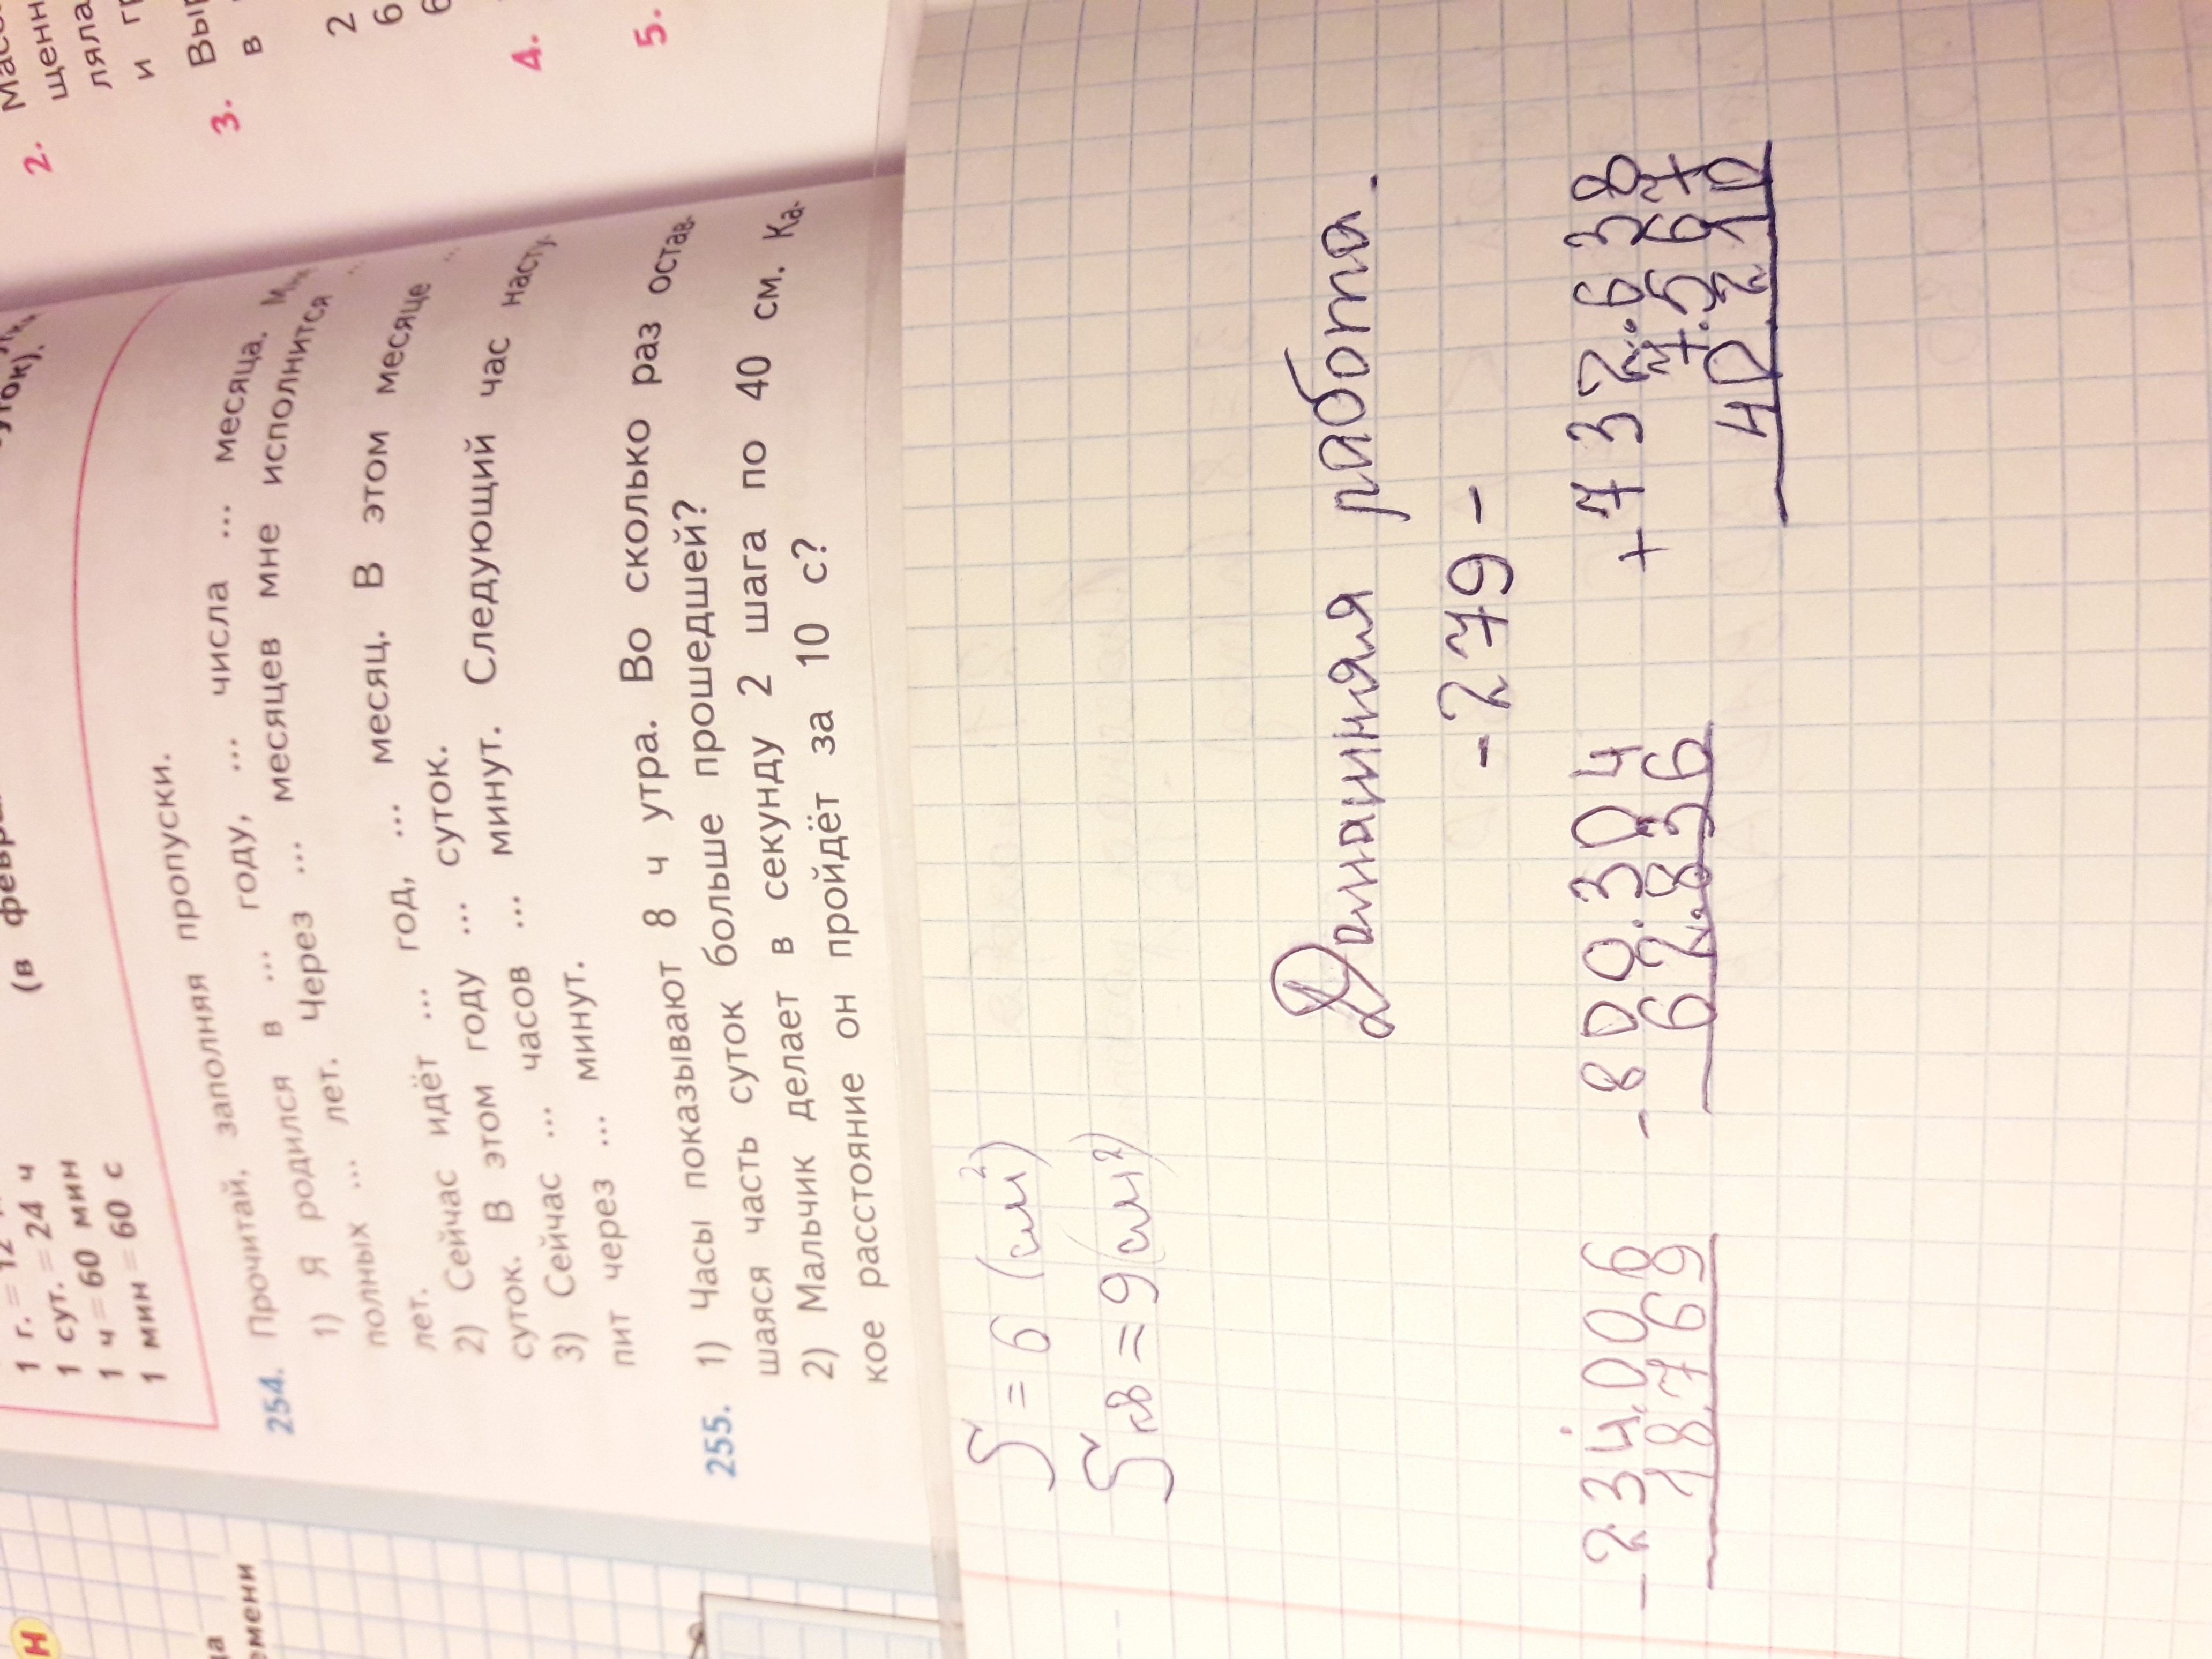 (в февра
уток).
1 г. = 12
1 сут. = 24 ч
1 ч = 60 мин
1 мин = 60 с
254. Прочитай, заполняя пропуски.
1) Я родился в ... году, ... числа ... месяца. М
полных ... лет. Через ... месяцев мне исполнится ..
лет.
2) Сейчас идёт ... год, ... месяц. В этом месяце ..
суток. В этом году ... суток.
3) Сейчас ... часов ... минут. Следующий час насту-
пит через ... минут.
255. 1) Часы показывают 8 ч утра. Во сколько раз остав-
шаяся часть суток больше прошедшей?
2) Мальчик делает в секунду 2 шага по 40 см. Ка-
кое расстояние он пройдёт за 10 с?
Н
да
емени
2. Масс
щенн
ляла
и гр
3. Выр
в
2
6
6
4.
5.
S = 6 (см²)
Sкв = 9 (см²)
Домашняя работа.
- 279 -
- 234.006
18.769
- 800.304
62.836
+ 732.638
7.567
40.210